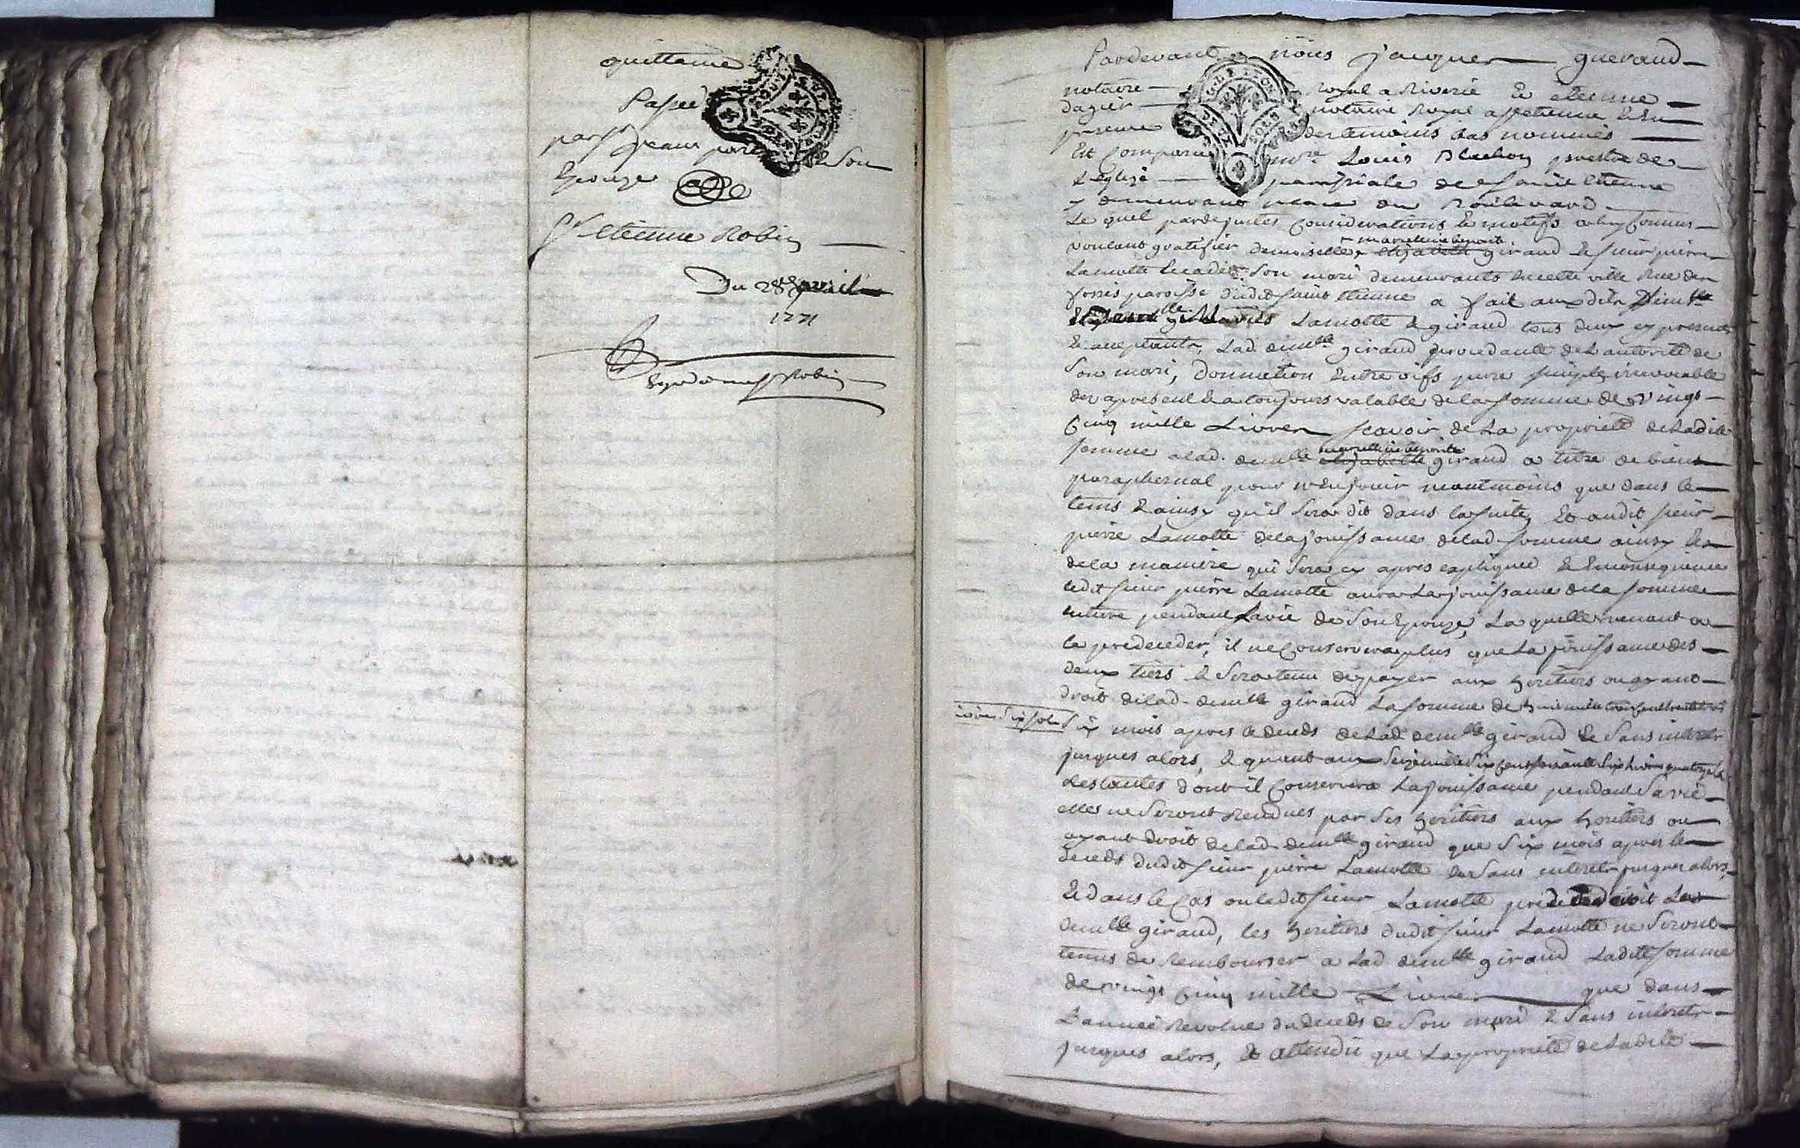 quittance
Passée
par Sr jean pierre & Son
Epouze
a
Sr etienne Robin
Du 28e avril
1771
Expedié au Sr Robin
Pardevant nous jacques gueraud
notaire Royal a Riverie & etienne
dagier notaire Royal a st etienne &en
presence des temoins bas nommés
Est Comparu mre Louis Blachon prestre de
L'eglize parroissiale de saint Etienne
y demeurant place du Boulevard
Le quel par de justes Considerations & motifs a luy Connus
voulant gratifier demoiselle marcelline benoite giraud & sieur pierre
Lamotte Cadet Son mari demeurants en cette ville Rue des
fossés paroisse dudit saint Etienne a fait aux dits
Lamotte & giraud tous deux cy presents
& acceptants, Lad. demlle giraud procedante de L'autorité de
Son mari, Donnation Entre vifs pure simple irrevocable
des apresent & a toujours valable de la somme de vingt
Cinq mille Livres scavoir de La proprieté de Ladite
somme a lad. demlle marcelline benoite giraud a titre de biens
paraphernal pour n'en jouir neantmoins que dans le
tems & ainsy qu'il Sera dit dans la suite, Et audit sieur
pierre Lamotte de la jouissance de lad. somme ainsy &
de la maniere qui Sera cy apres expliquée & En consequence
ledit sieur pierre Lamotte aura La jouissance de la somme
entiere pendant La vie de Son Epouze, La quelle venant a
la predeceder, il ne Conservera plus que La jouissance des
deux tiers & Sera tenu de payer aux heritiers ou ayant
droit de lad. demlle giraud La somme de huit mille trois cent trente trois
livres six sols Six mois apres le deceds de Lad. demlle giraud & Sans interets
jusques alors, & quant aux Seize mille Six Cent soixante Six livres quatorze sols
Restantes dont il Conservera La jouissance pendant Sa vie
elles ne Seront Rendues par Ses heritiers aux heritiers ou
ayant droit de lad. demlle giraud que Six mois apres le
deceds dudit sieur pierre Lamotte & Sans interets jusques alors,
& dans le Cas ou ledit sieur Lamotte predecederoit Lad.
demlle giraud, les heritiers dudit sieur Lamotte ne Seront
tenus de Rembourser a Lad. demlle giraud Ladite somme
de vingt Cinq mille Livres que dans
L'année Revolue du deceds de Son mari & Sans interets
jusques alors, Et attendu que La proprieté de Ladite